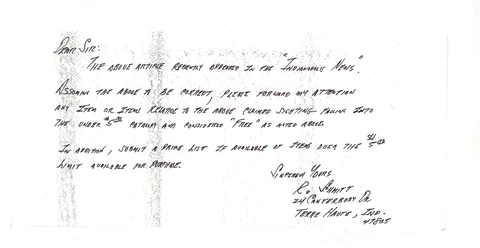 Dear Sir:
The above article recently appeared in the "Indianapolis News".
Assuming the above to be correct, please forward my attention
any item or items relative to the above claimed sighting falling into
the under $5.00 category and considered "Free" as noted above.
In addition, submit a price list if available of items over the $5.00
limit available for purchase.
Sincerely Yours
R. Schmitt
24 Canterbury Dr
Terre Haute, Ind.
47805